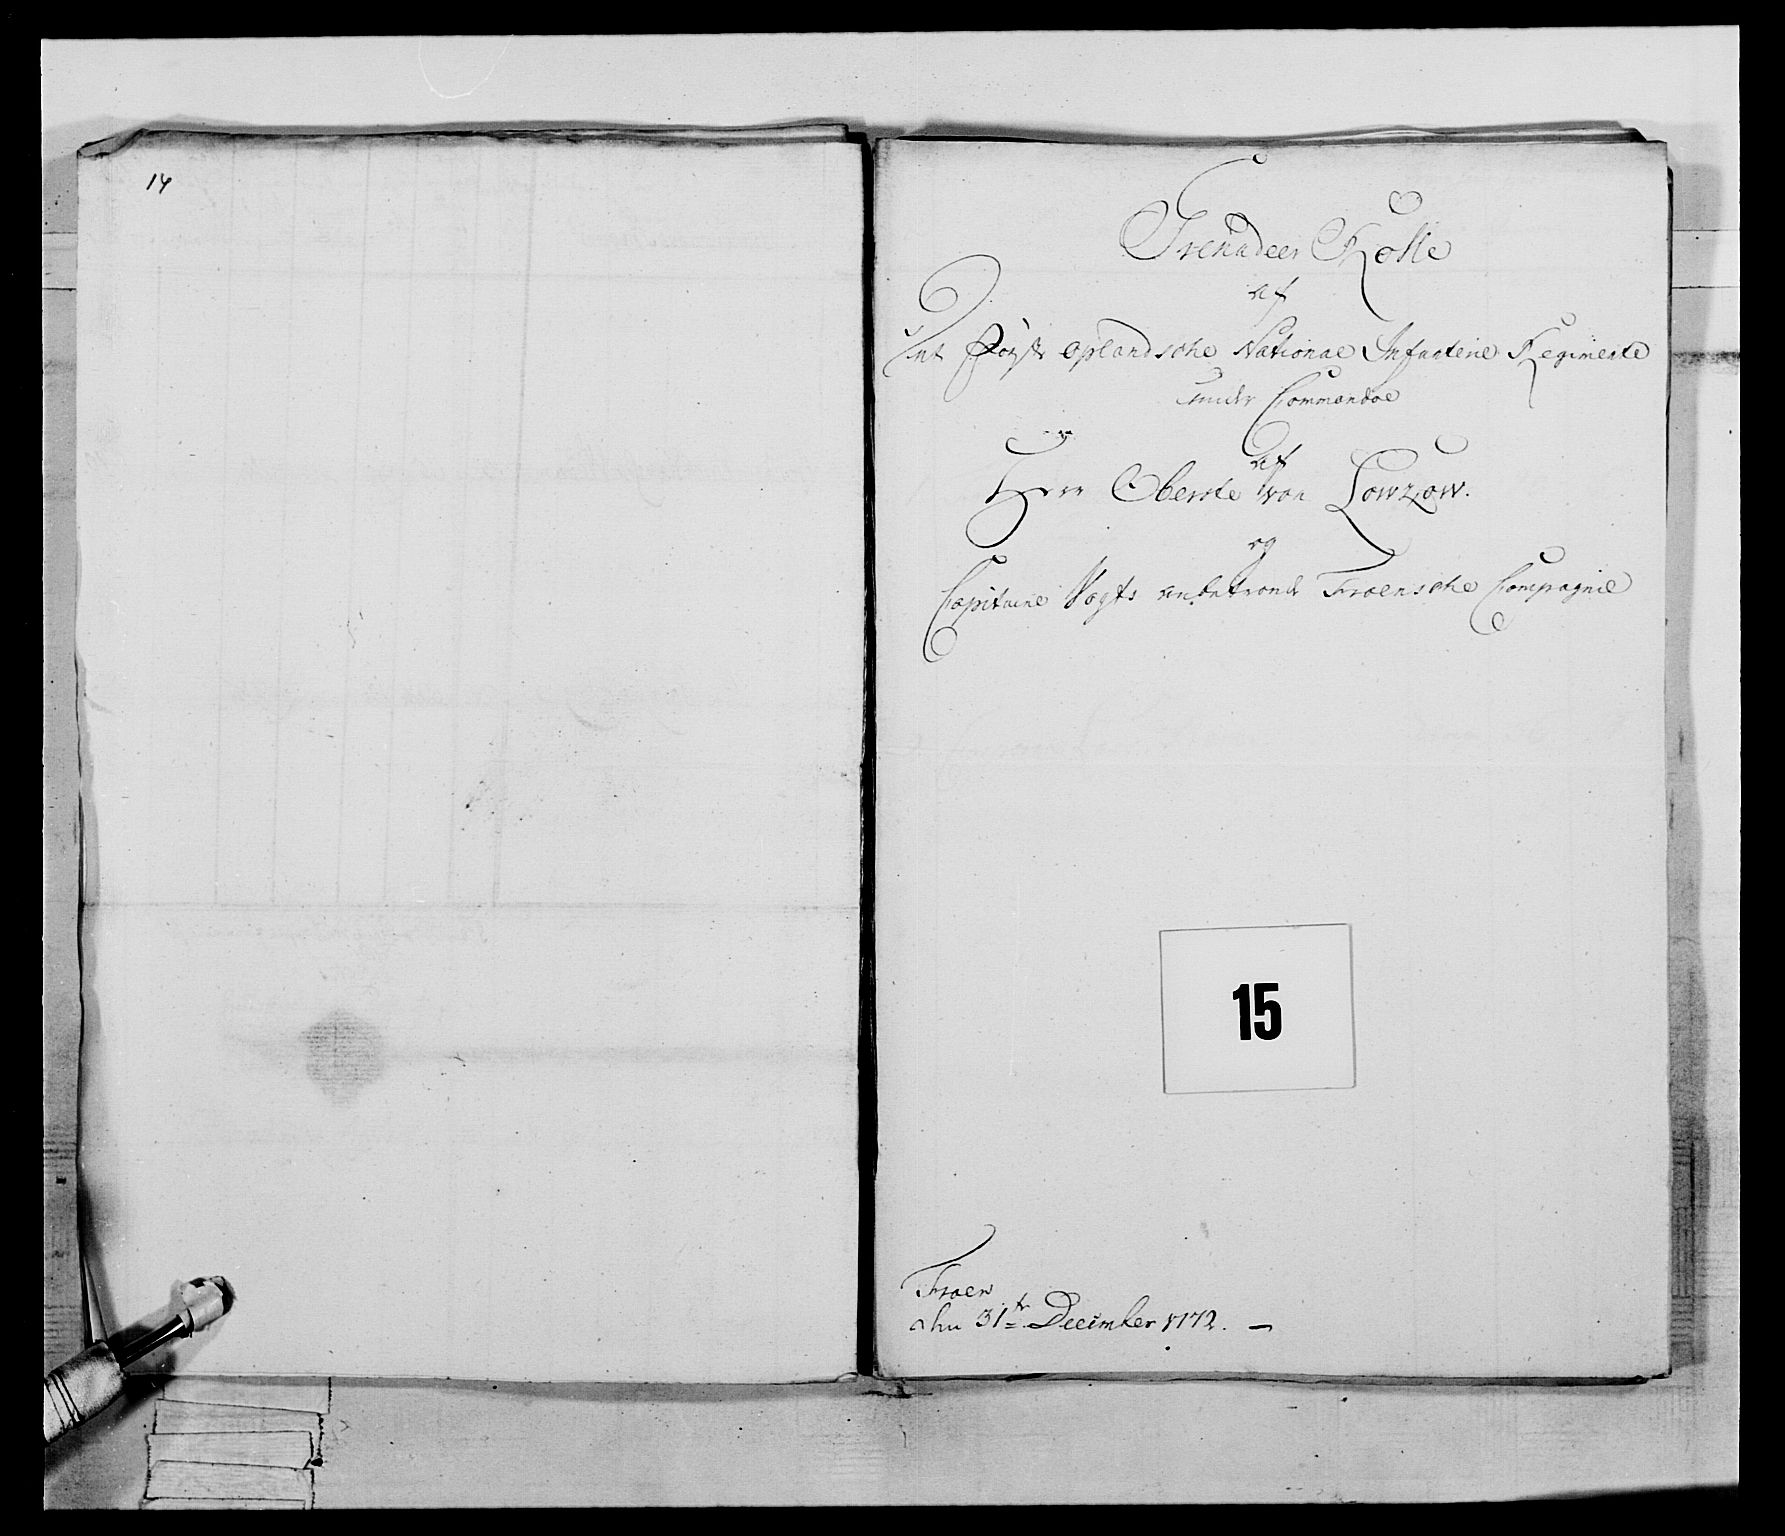 14
Grenadeer Rolle
af
Det første oplandsche National Infanterie Regimente
under Commandoe
af
Herr Oberste von Lowzow.
og
Capitaine Vogts anbetroede Froensche Compagnie
15
Froen
den 31te December 1772. —